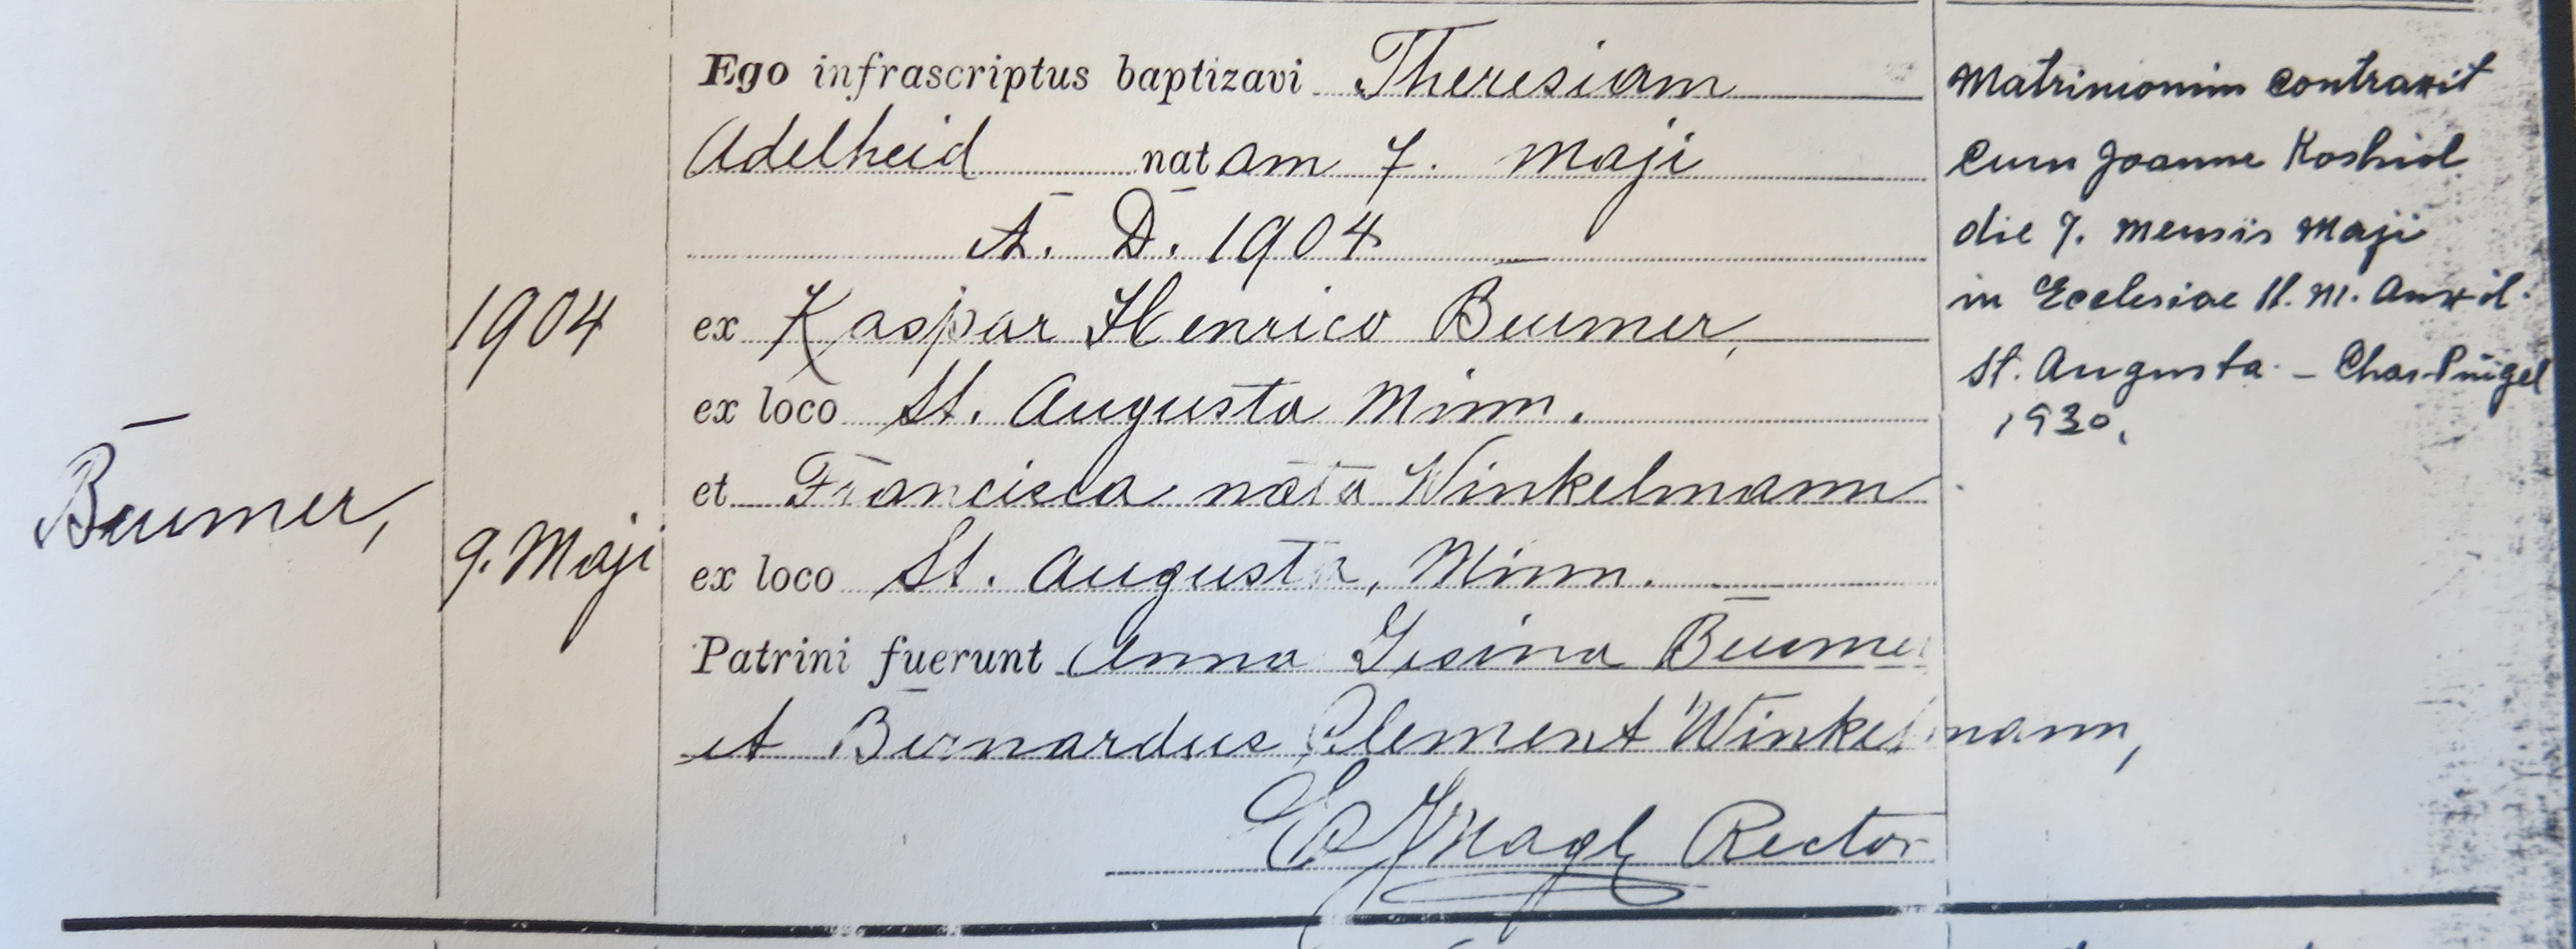 Beumer,
1904
9. Maji
Ego infrascriptus baptizavi Theresiam
Adelheid natam 7. Maji
A. D. 1904
ex Kaspar Henrico Beumer,
ex loco St. Augusta Minn.
et Francisca nata Winkelmann
ex loco St. Augusta, Minn.
Patrini fuerunt Anna Gesina Beumer
et Bernardus Clement Winkelmann,
Nagl Rector
Matrimonium contraxit
cum Joanne Koshiol
die 7. mensis Maji
in Ecclesiae
St. Augusta - Chas. Püigel
1930.